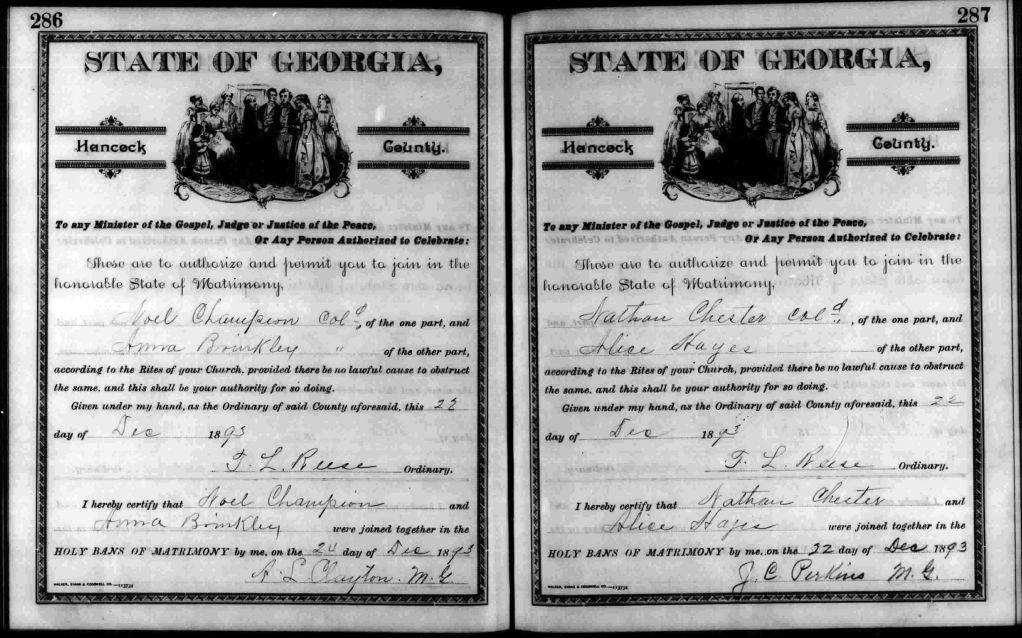 286
STATE OF GEORGIA,
Hancock County.
To any Minister of the Gospel, Judge or Justice of the Peace,
Or Any Person Authorized to Celebrate:
These are to authorize and permit you to join in the
honorable State of Matrimony,
Noel Champion Cold, of the one part, and
Anna Brinkley " of the other part,
according to the Rites of your Church, provided there be no lawful cause to obstruct
the same, and this shall be your authority for so doing.
Given under my hand, as the Ordinary of said County aforesaid, this 22
day of Dec 1893
T. L. Reese Ordinary.
I hereby certify that Noel Champion and
Anna Brinkley were joined together in the
HOLY BANS OF MATRIMONY by me, on the 24 day of Dec 1893
A. L. Clayton. M. G.
WALKER, EVANS & COGSWELL CO.
287
STATE OF GEORGIA,
Hancock County.
To any Minister of the Gospel, Judge or Justice of the Peace,
Or Any Person Authorized to Celebrate:
These are to authorize and permit you to join in the
honorable State of Matrimony,
Nathan Chester Cold, of the one part, and
Alice Hayes of the other part,
according to the Rites of your Church, provided there be no lawful cause to obstruct
the same, and this shall be your authority for so doing.
Given under my hand, as the Ordinary of said County aforesaid, this 22
day of Dec 1893
T. L. Reese Ordinary.
I hereby certify that Nathan Chester and
Alice Hayes were joined together in the
HOLY BANS OF MATRIMONY by me, on the 22 day of Dec 1893
J. C. Perkins M. G.
WALKER, EVANS & COGSWELL CO.